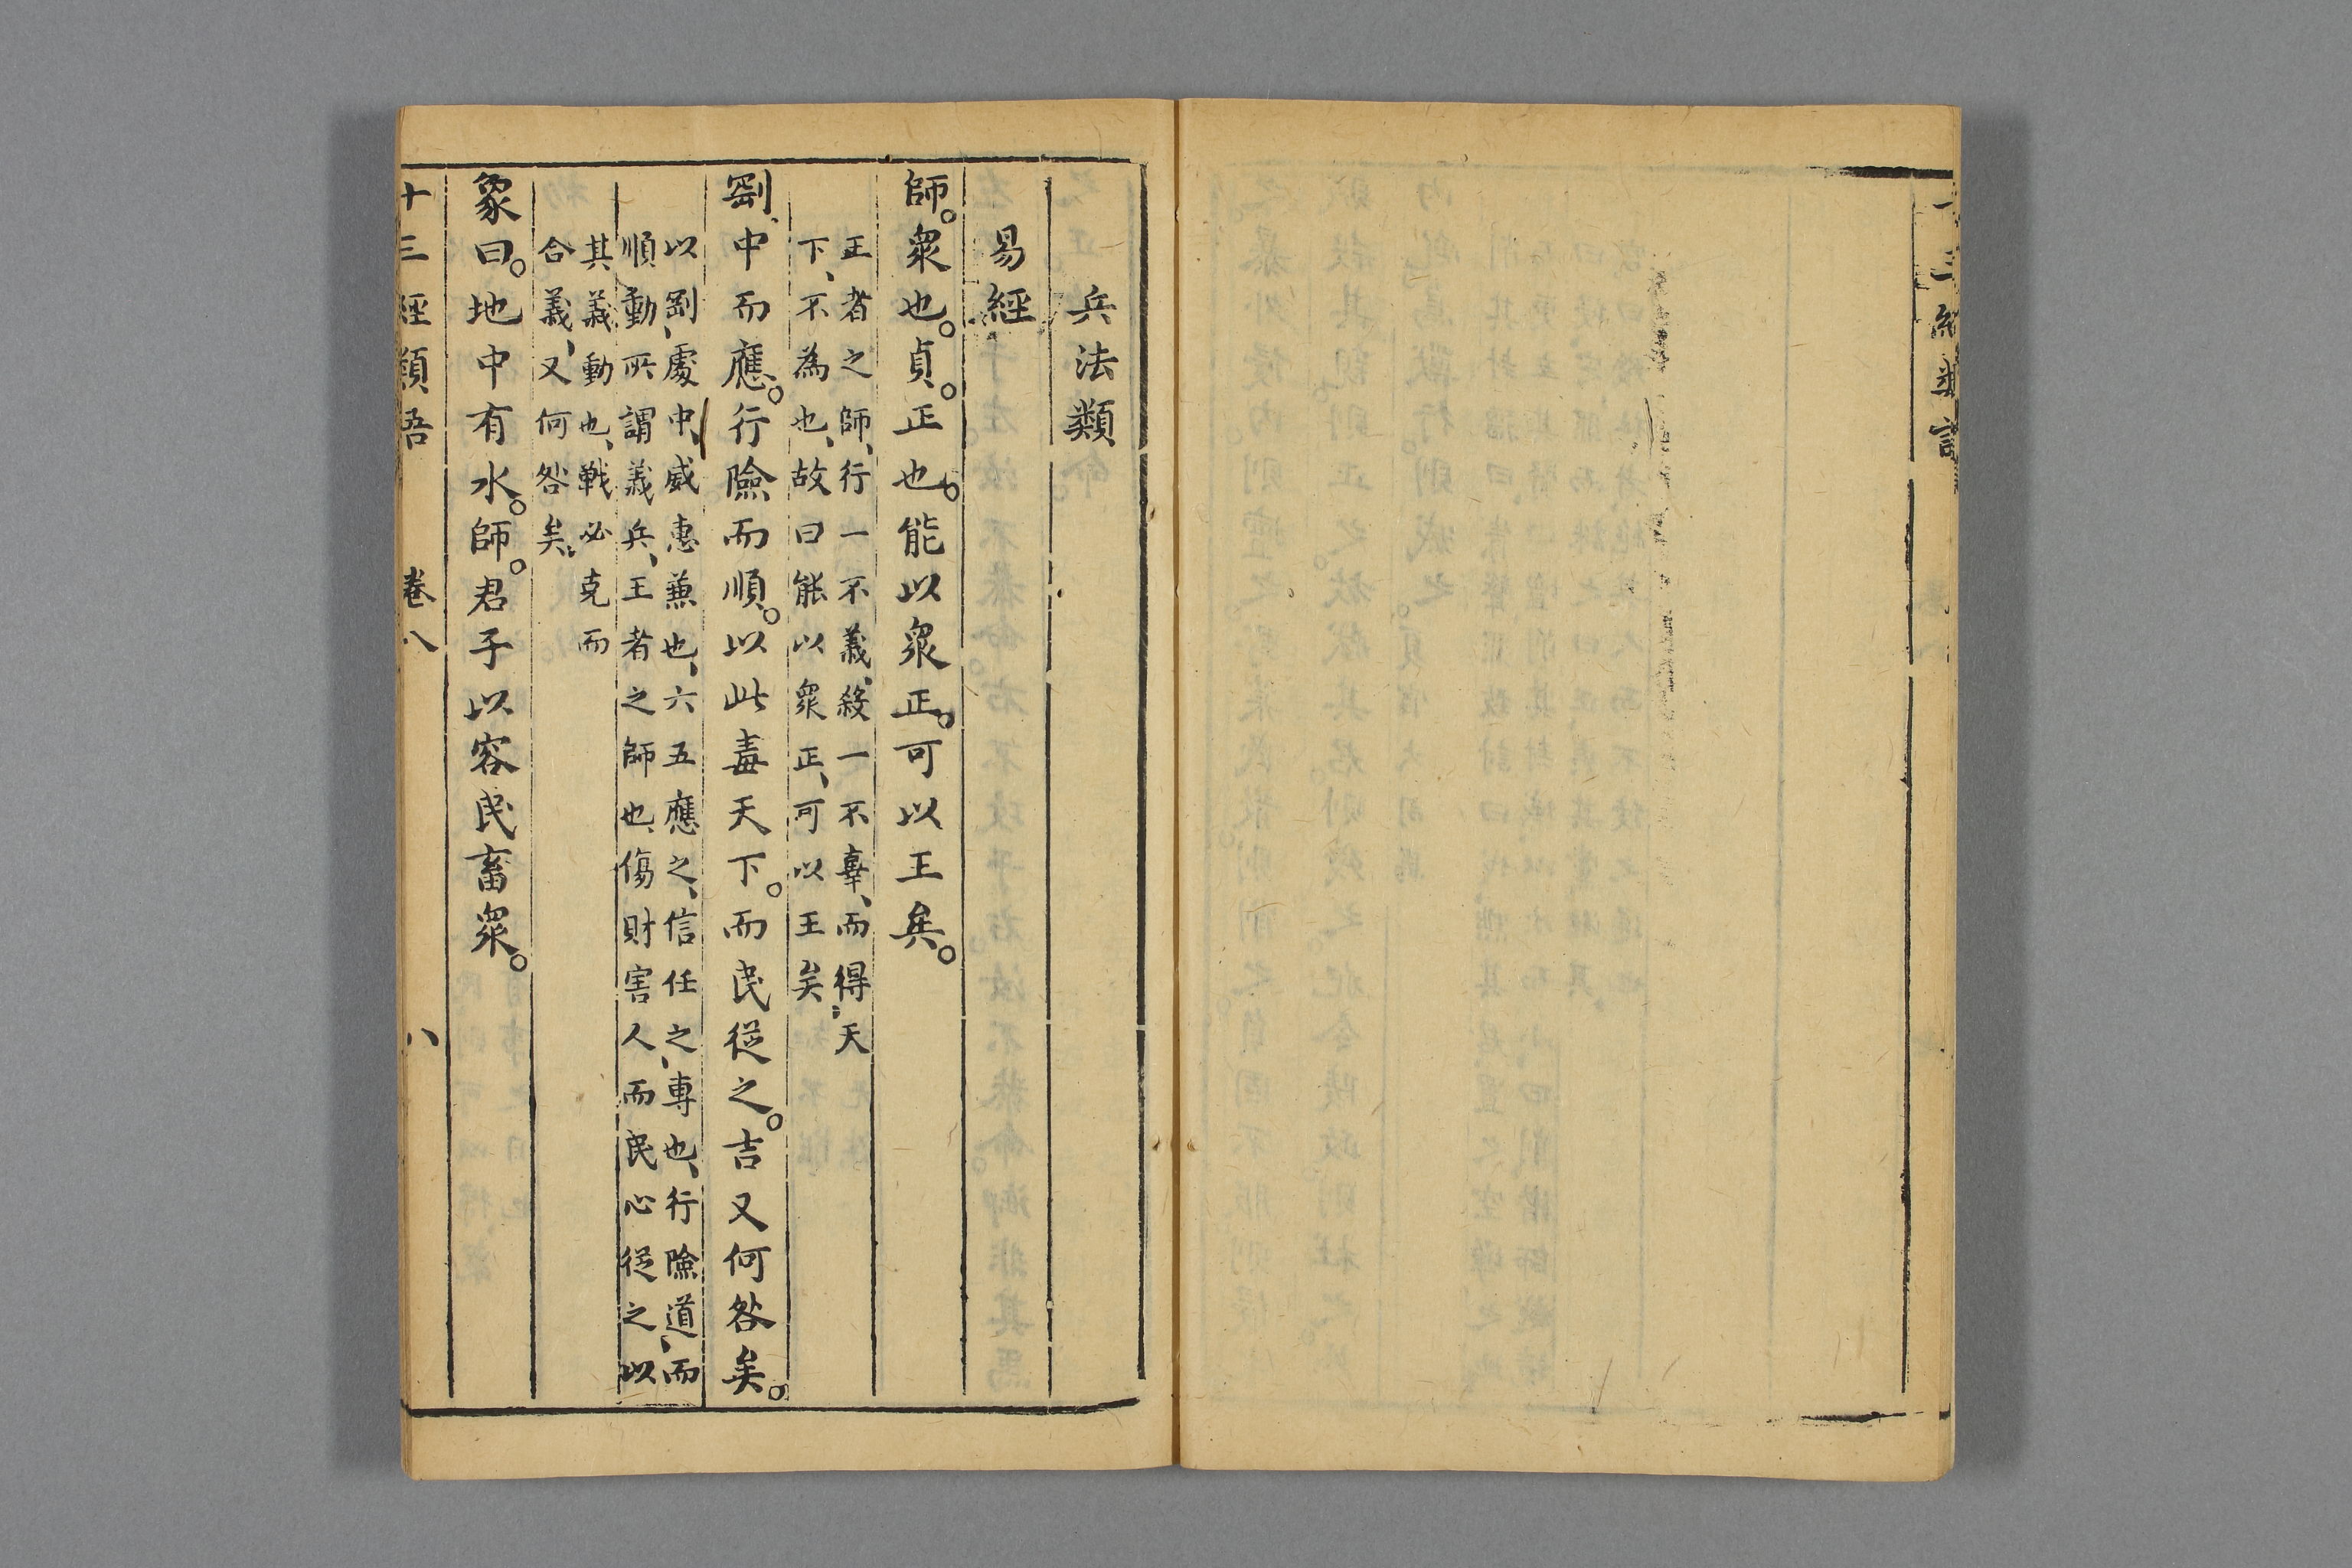 十三經類語
兵法類
易經
師。衆也。貞。正也。能以衆正。可以王矣。
王者之師、行一不義、殺一不辜、而得天
下、不為也、故曰能以衆正、可以王矣、
剛、中而應。行險而順。以此毒天下。而民從之。吉又何咎矣。
以剛、處中、威惠兼也、六五應之、信任之、專也、行險道、而
順動、所謂義兵、王者之師也、傷財害人而民心從之以
其義動也、戰必克而
合義、又何咎矣、
象曰。地中有水。師。君子以容民畜衆。
十三經類語 卷八 八